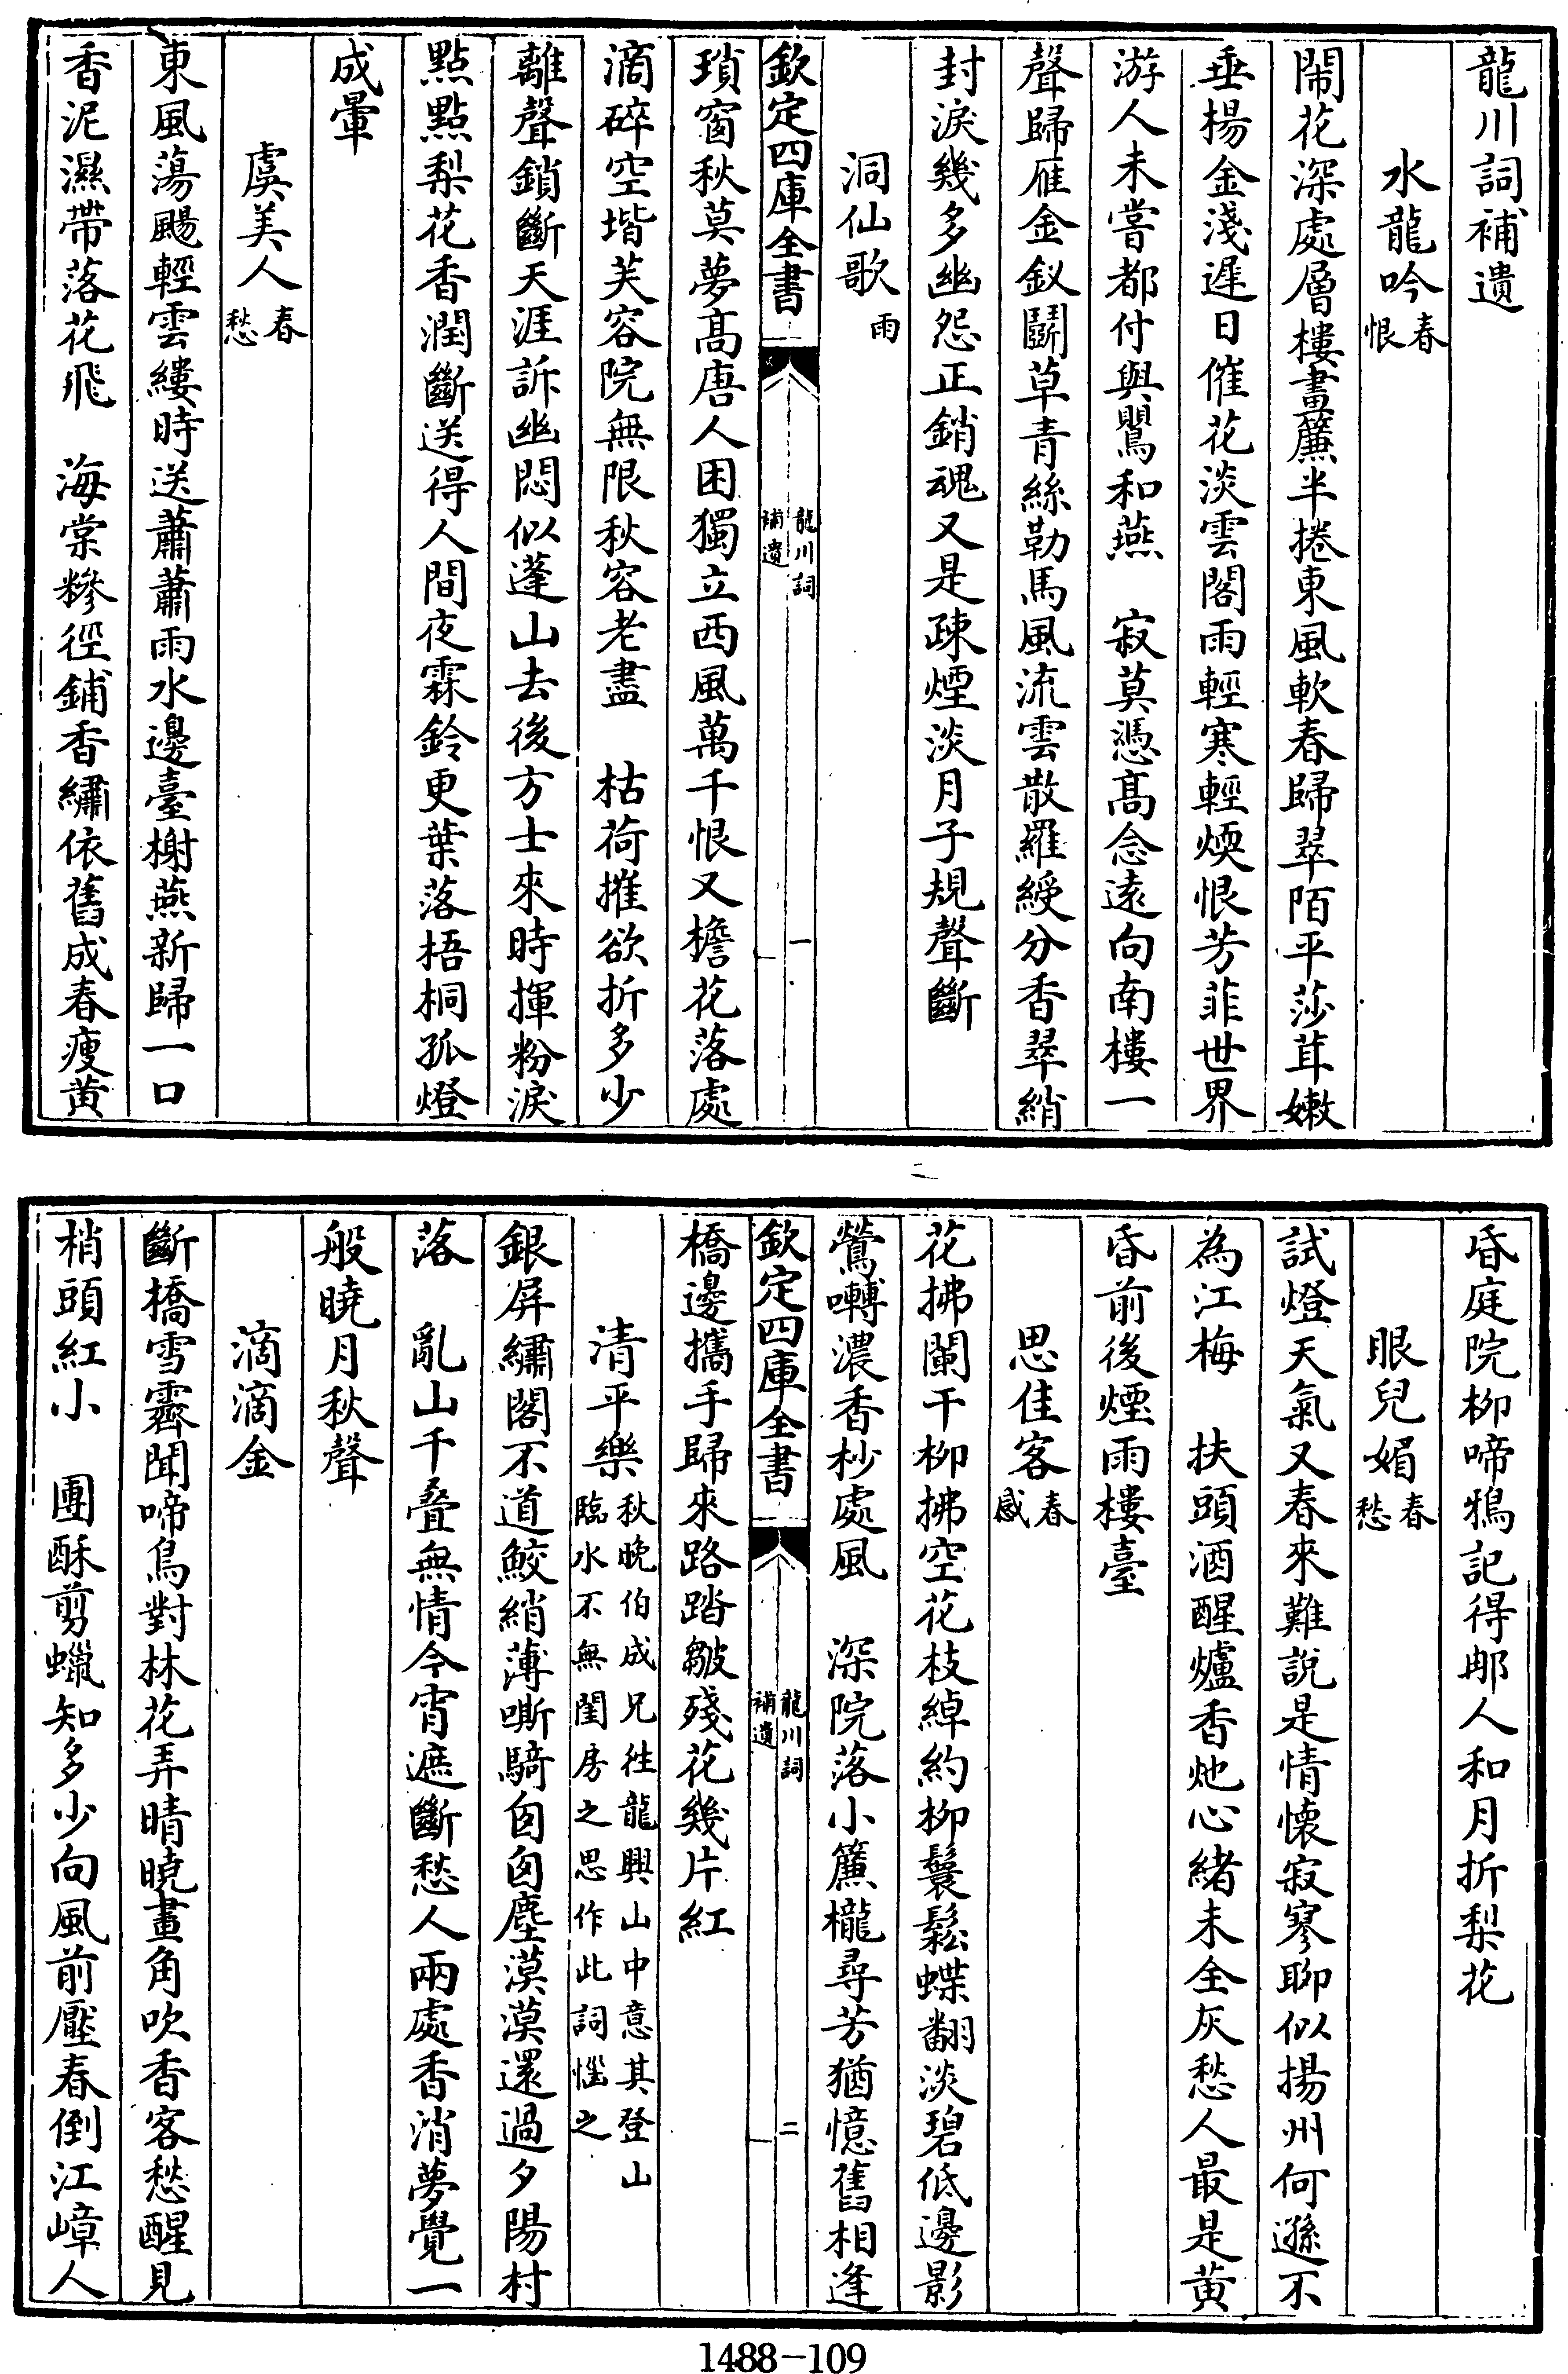 龍川詞補遺
水龍吟春恨
鬧花深處層樓畫簾半捲東風軟春歸翠陌平莎茸嫩
垂楊金淺遲日催花淡雲閣雨輕寒輕煖恨芳菲世界
游人未嘗都付與鸎和燕　寂莫憑髙念遠向南樓一
聲歸雁金釵鬬草青絲勒馬風流雲散羅綬分香翠綃
封淚幾多幽怨正銷魂又是疎煙淡月子規聲斷
洞仙歌雨
瑣窗秋莫夢髙唐人困獨立西風萬千恨又檐花落處
滴碎空堦芙容院無限秋容老盡　枯荷摧欲折多少
離聲鎖斷天涯訴幽悶似蓬山去後方士來時揮粉淚
點點梨花香潤斷送得人間夜霖鈴更葉落梧桐孤燈
成暈
虞美人春愁
東風蕩颺輕雲縷時送蕭蕭雨水邊臺榭燕新歸一口
香泥濕帶落花飛　海棠糝徑鋪香繡依舊成春瘦黄
欽定四庫全書
龍川詞補遺
一
昏庭院柳啼鴉記得那人和月折梨花
眼兒媚春愁
試燈天氣又春來難說是情懷寂寥聊似揚州何遜不
為江梅　扶頭酒醒爐香灺心緒未全灰愁人最是黄
昏前後煙雨樓臺
思佳客春感
花拂闌干柳拂空花枝綽約柳鬟鬆蝶翻淡碧低邊影
鶯囀濃香杪處風　深院落小簾櫳尋芳猶憶舊相逢
橋邊攜手歸來路踏皺殘花幾片紅
清平樂秋晚伯成兄往龍興山中意其登山臨水不無閨房之思作此詞惱之
銀屏繡閣不道鮫綃薄嘶騎匆匆塵漠漠還過夕陽村
落　亂山千疊無情今宵遮斷愁人兩處香消夢覺一
般曉月秋聲
滴滴金
斷橋雪霽聞啼鳥對林花弄晴曉畫角吹香客愁醒見
梢頭紅小　團酥剪蠟知多少向風前壓春倒江嶂人
欽定四庫全書
龍川詞補遺
二
1488-109